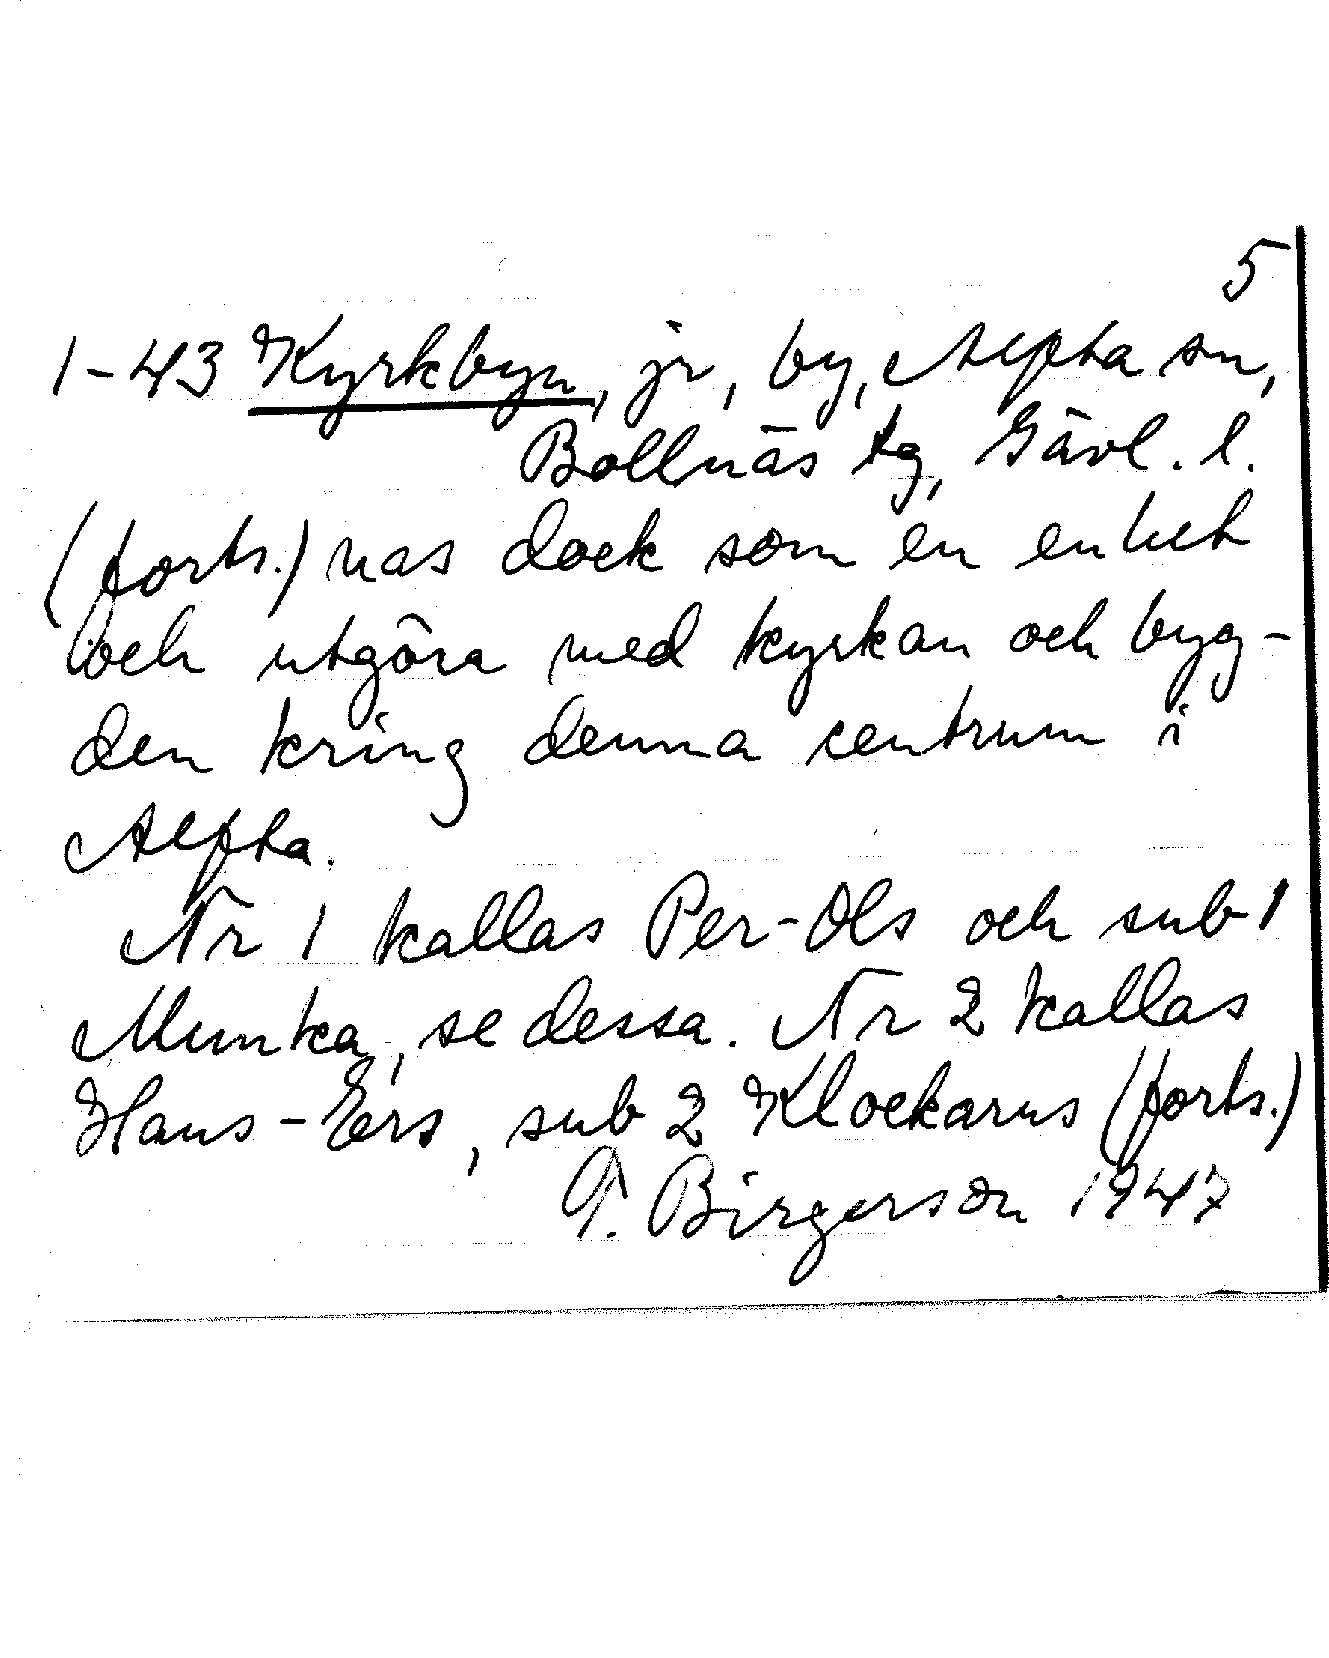 5
1-43 Kyrkbyn, jr, by, Alfta sn,
Bollnäs tg, Gävl. l.
(forts.) nas dock som en enhet
och utgöra med kyrkan och byg-
den kring denna centrum i
Alfta.
Nr 1 kallas Per-Ols och sub 1
Munka, se dessa. Nr 2 kallas
Hans-Ers, sub 2 Klockarns (forts.)
G. Birgerson 1947